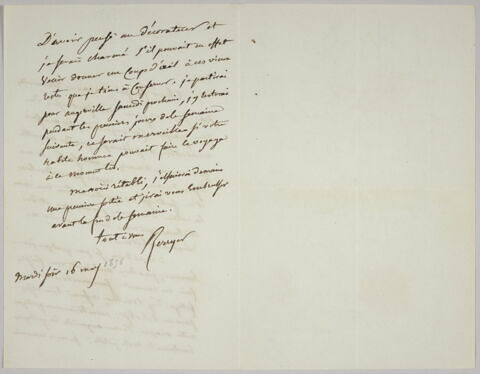 D'avoir pensé au décorateur et
je serais charmé s'il pouvait en effet
venir donner un coup d'œil à ces vieux
restes que je tiens à conserver. je partirai
pour augerville samedi prochain, j'y resterai
pendant les premiers jours de la semaine
suivante, ce serait merveille si votre
habile homme pouvait faire le voyage
à ce moment là.
me voici rétabli, j'essaierai demain
une première sortie et j'irai vous
avant la fin de la semaine.
tout à vous
Berryer
Mardi soir 16 may